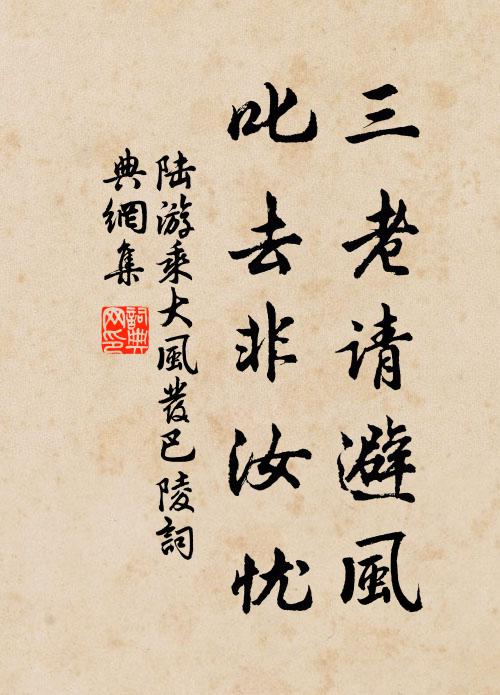 三老请避風
叱去非汝忧
陆游乘大風發巴陵詞
典網集
詞典
网印